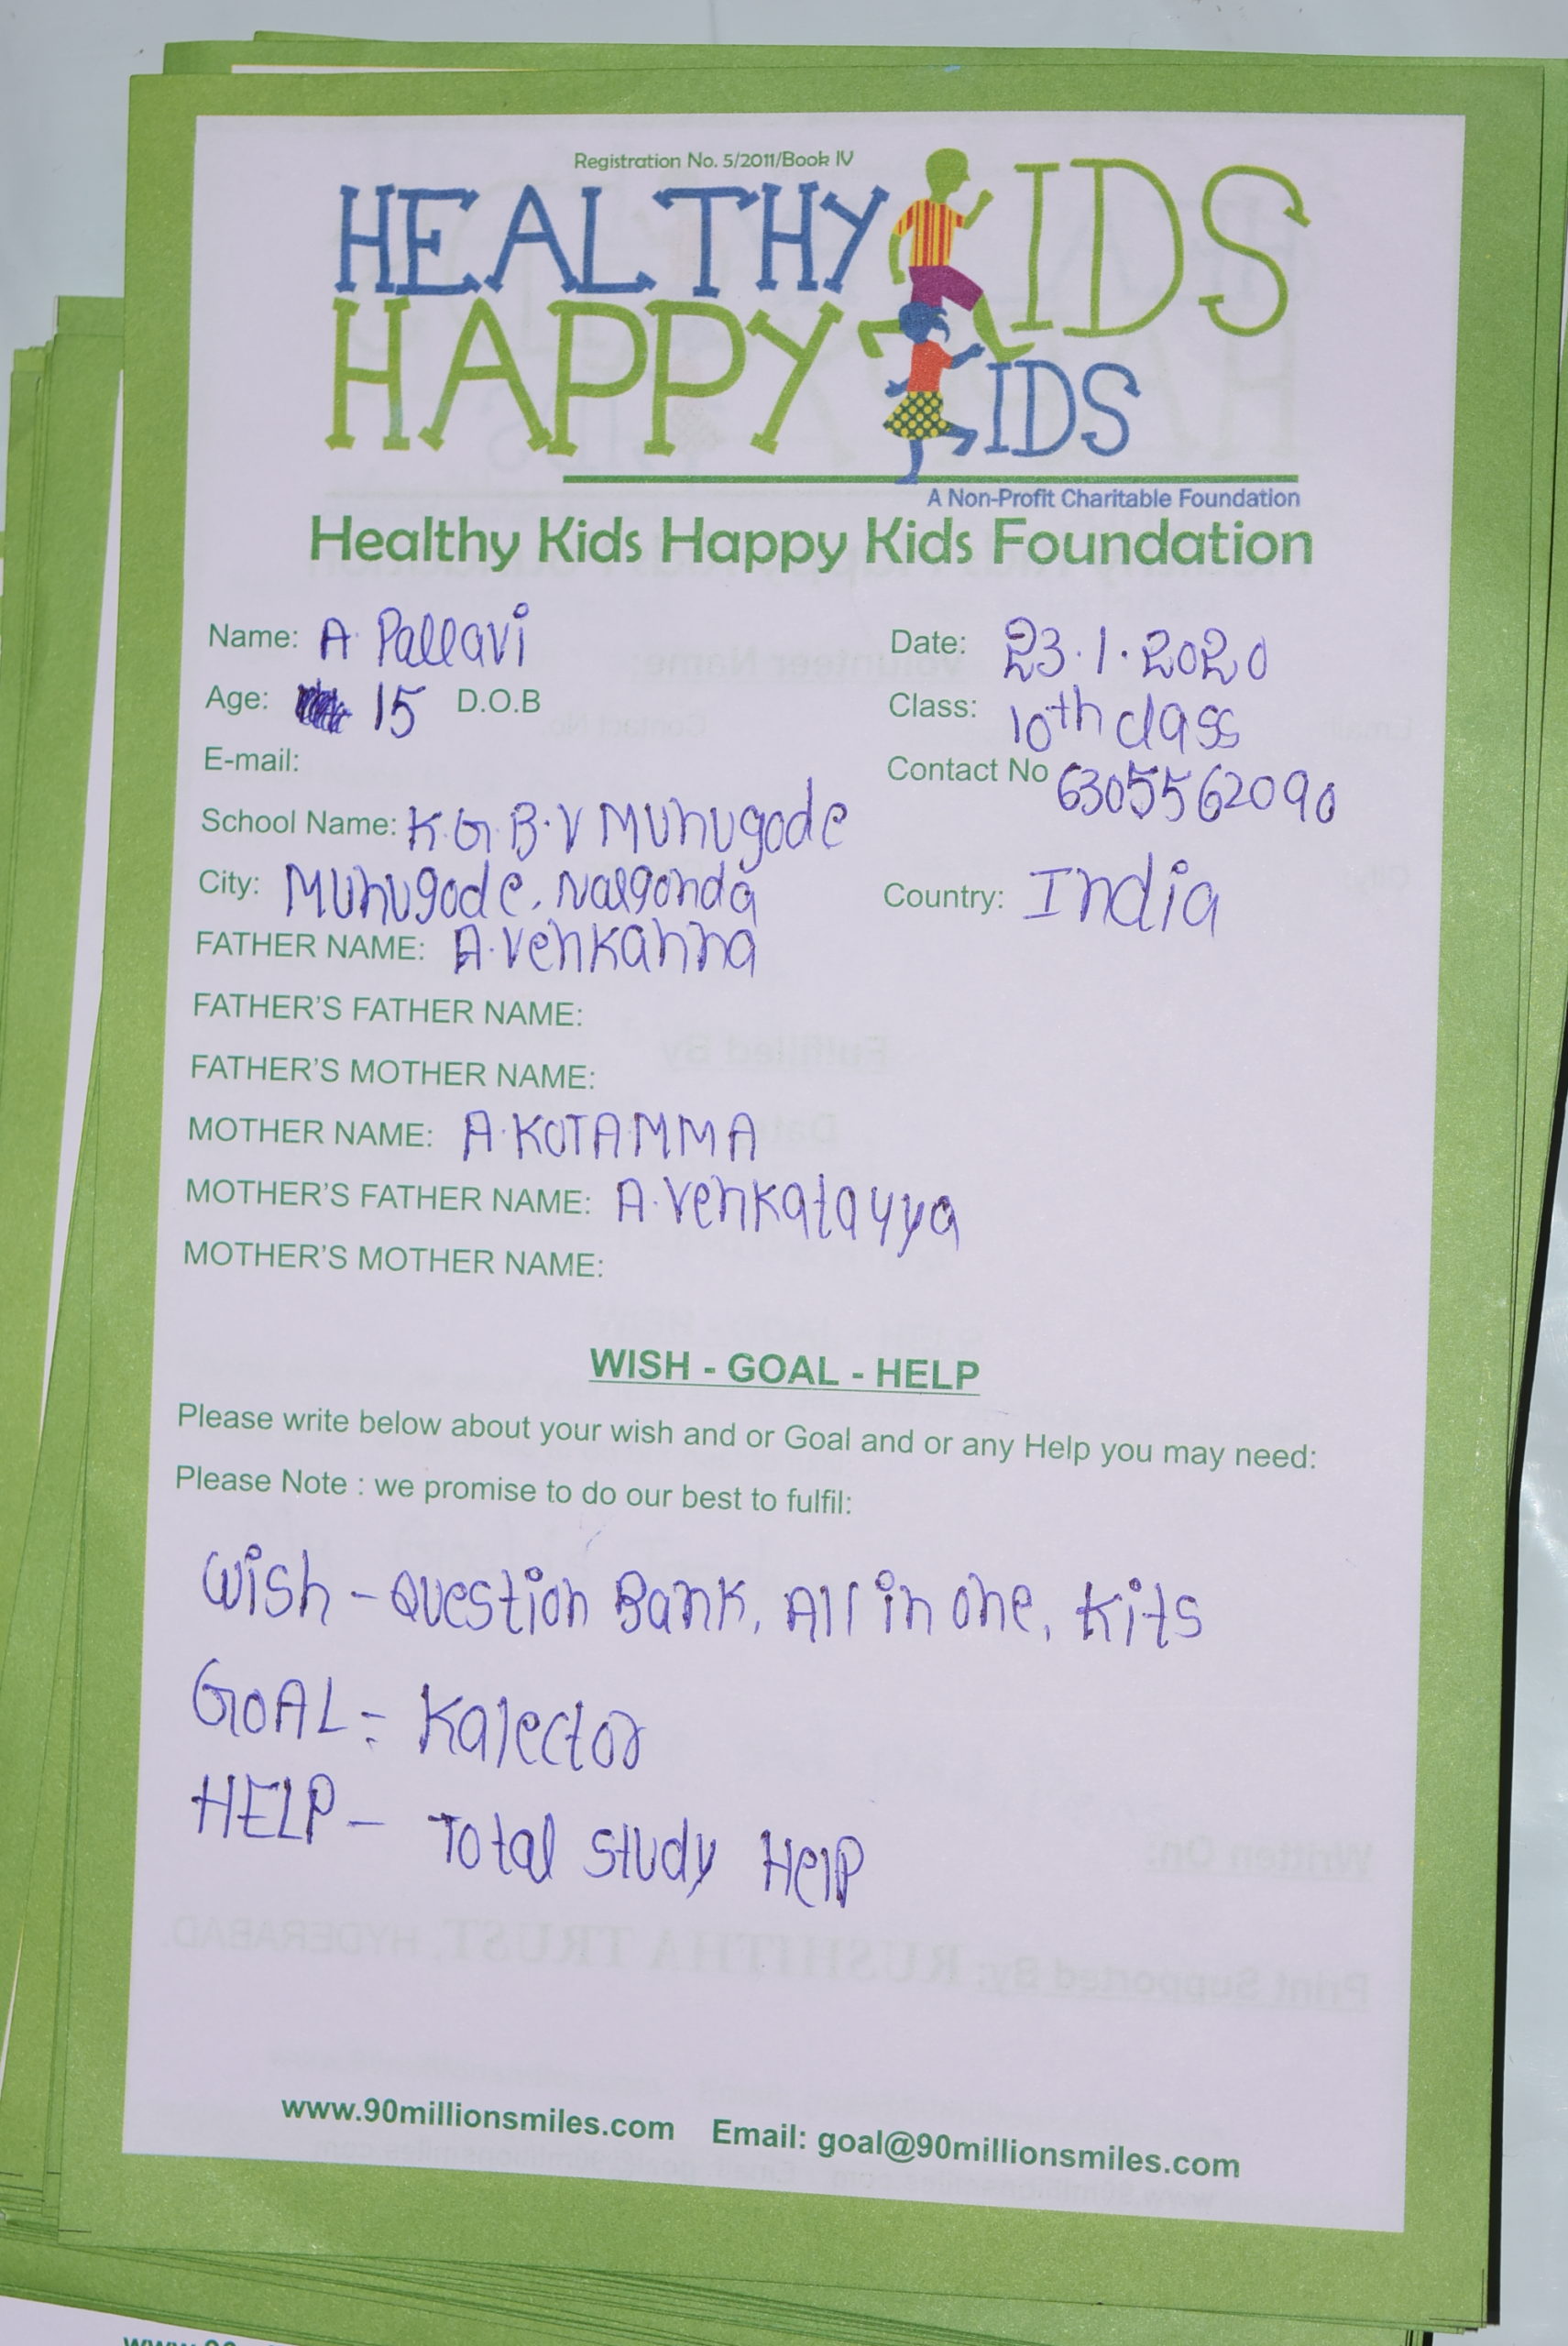 Registration No. 5/2011/Book IV
HEALTHY KIDS
HAPPY KIDS
A Non-Profit Charitable Foundation
Healthy Kids Happy Kids Foundation
Name: A. Pallavi Date: 23.1.2020
Age: 15 D.O.B Class: 10th class
E-mail: Contact No 6305562090
School Name: K.G.B.V Munugode
City: Munugode, Nalgonda Country: India
FATHER NAME: A. Venkanna
FATHER'S FATHER NAME:
FATHER'S MOTHER NAME:
MOTHER NAME: A. KOTAMMA
MOTHER'S FATHER NAME: A. Venkatayya
MOTHER'S MOTHER NAME:
WISH - GOAL - HELP
Please write below about your wish and or Goal and or any Help you may need:
Please Note : we promise to do our best to fulfil:
Wish - Question Bank, All in one, Kits
GOAL = Kalector
HELP - Total Study Help
www.90millionsmiles.com Email: goal@90millionsmiles.com